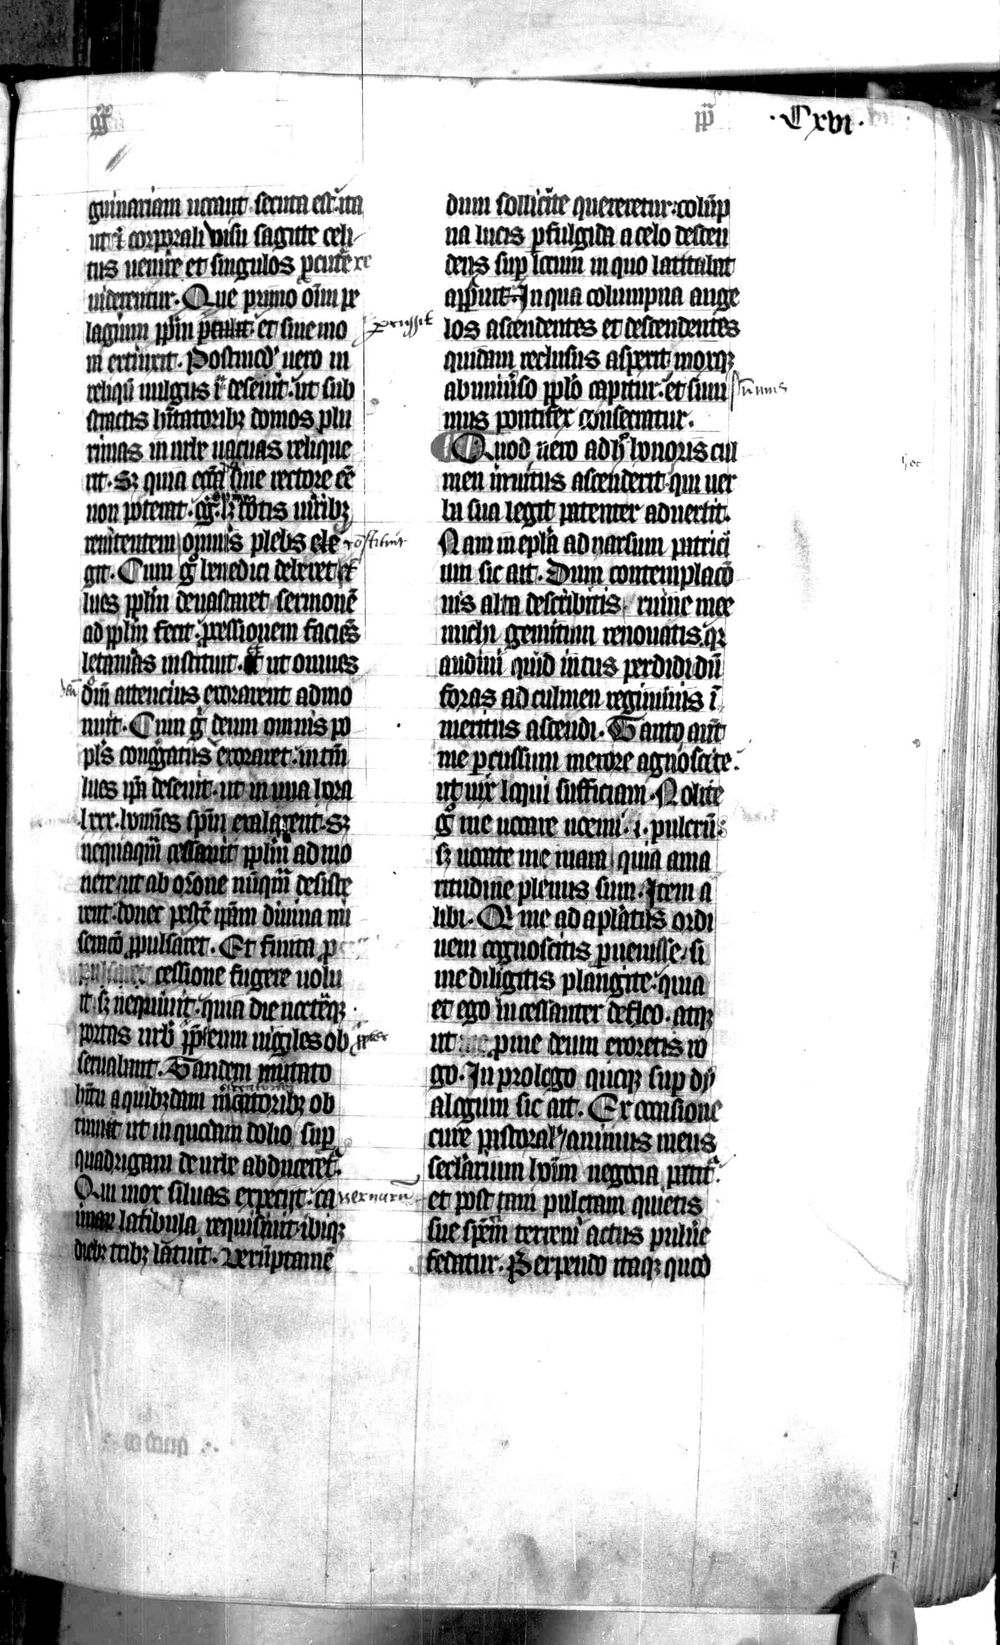 gr̄
pp̄
·Cxvi·
guinariam uocant secuta est: ita
ut et̄ corporali uisu sagitte celi
tus uenire et singulos p̱cute re
uiderentur. Que primo om̄ pe
lagium pp̄m et sine mo
ra extinxit. Postmod' uero in
reliqu̅ uulgus it̄ deseuit: ut sub
stractis hītatoribꝫ domos plu
rimas in urbe uacuas relique
rit. Sꝫ quia ecc̄ia sine rectore eē
non poterat. gg̊. lꝫ totis uiribꝫ
renitentem omnis plebs ele
git. Cum g̊ benedici deberet et
lues pp̄lm deuastaret sermonē
ad pp̄lm fecit. p̱cessionem faciēs
letanias instituit. et ut omnes
dm̄ attencius exorarent admo
nuit. Cum g̊ deum omnis po
pl's cong̊gatus exoraret: in tm̄
lues ip̄a deseuit. ut in una hora
lxxx. homīes sp̄m exalarent. Sꝫ
nequaqm̄ cessauit pp̄lm admo
nere ut ab or̄one nu̅qm̄ desiste
rent. donec pestē ip̄am diuina mi
serac̄o p̱pulsaret. Et finita p
cessione fugere uolu
it sꝫ nequiuit. quia die nocteqꝫ
portas urb' pp̄ eum uigiles ob
seruabant. Tandem mutato
hītu a quibꝫdam mercatoribꝫ ob
tinuit ut in quodam dolio sup̱
quadrigam de urbe abduceret̄.
Qui mox siluas expetijt. ca
latibula requisiuit ibiqꝫ
diebꝫ tribꝫ latuit. Veru̅ptamē
p̱cussit
co̅stituit
pp̱ter
uernaru̅
dum sollicite quereretur: colu̅p
na lucis p̱fulgida a celo descen
dens sup̱ locum in quo latitabat
app̱uit. In qua columpna ange
los ascendentes et descendentes
quidam reclusus aspexit moxqꝫ
ab uniu̅so pp̄lo capitur. et sum
mus pontifex consecratur.
Quod uero ad h̊ honoris cul
men inuitus ascenderit qui uer
ba sua legit patenter aduertit.
Nam in ep̄la ad narsum patrici
um sic ait. Dum contemplac̄o
nis alta describitis. ruine mee
michi gemitum renouatis. qꝫ
audiui quid intus perdidi du̅
foras ad culmen regiminis i̅
meritus ascendi. Tanto aut̄
me p̱cussum merore agnoscite.
ut uix loqui sufficiam. Nolite
g̊ me uocare noemi .i. pulcru̅.
sꝫ uocate me mara quia ama
ritudine plenus sum. Item a
libi. Qꝫ me ad ap̄latus ordi
nem cognoscitis p̱uenisse. si
me diligitis plangite: quia
et ego incessanter defleo. atqꝫ
ut p̱ me deum exoretis ro
go. In prologo quoqꝫ sup̱ dy
alogum sic ait. Ex occasione
cure pastoral' animus meus
sec̄larium ho̅im negocia patit̄.
et post tam pulcram quietis
sue sp̄em terreni actus puluie
fedatur. Perpendo itaqꝫ quod
su̅mus
hoc